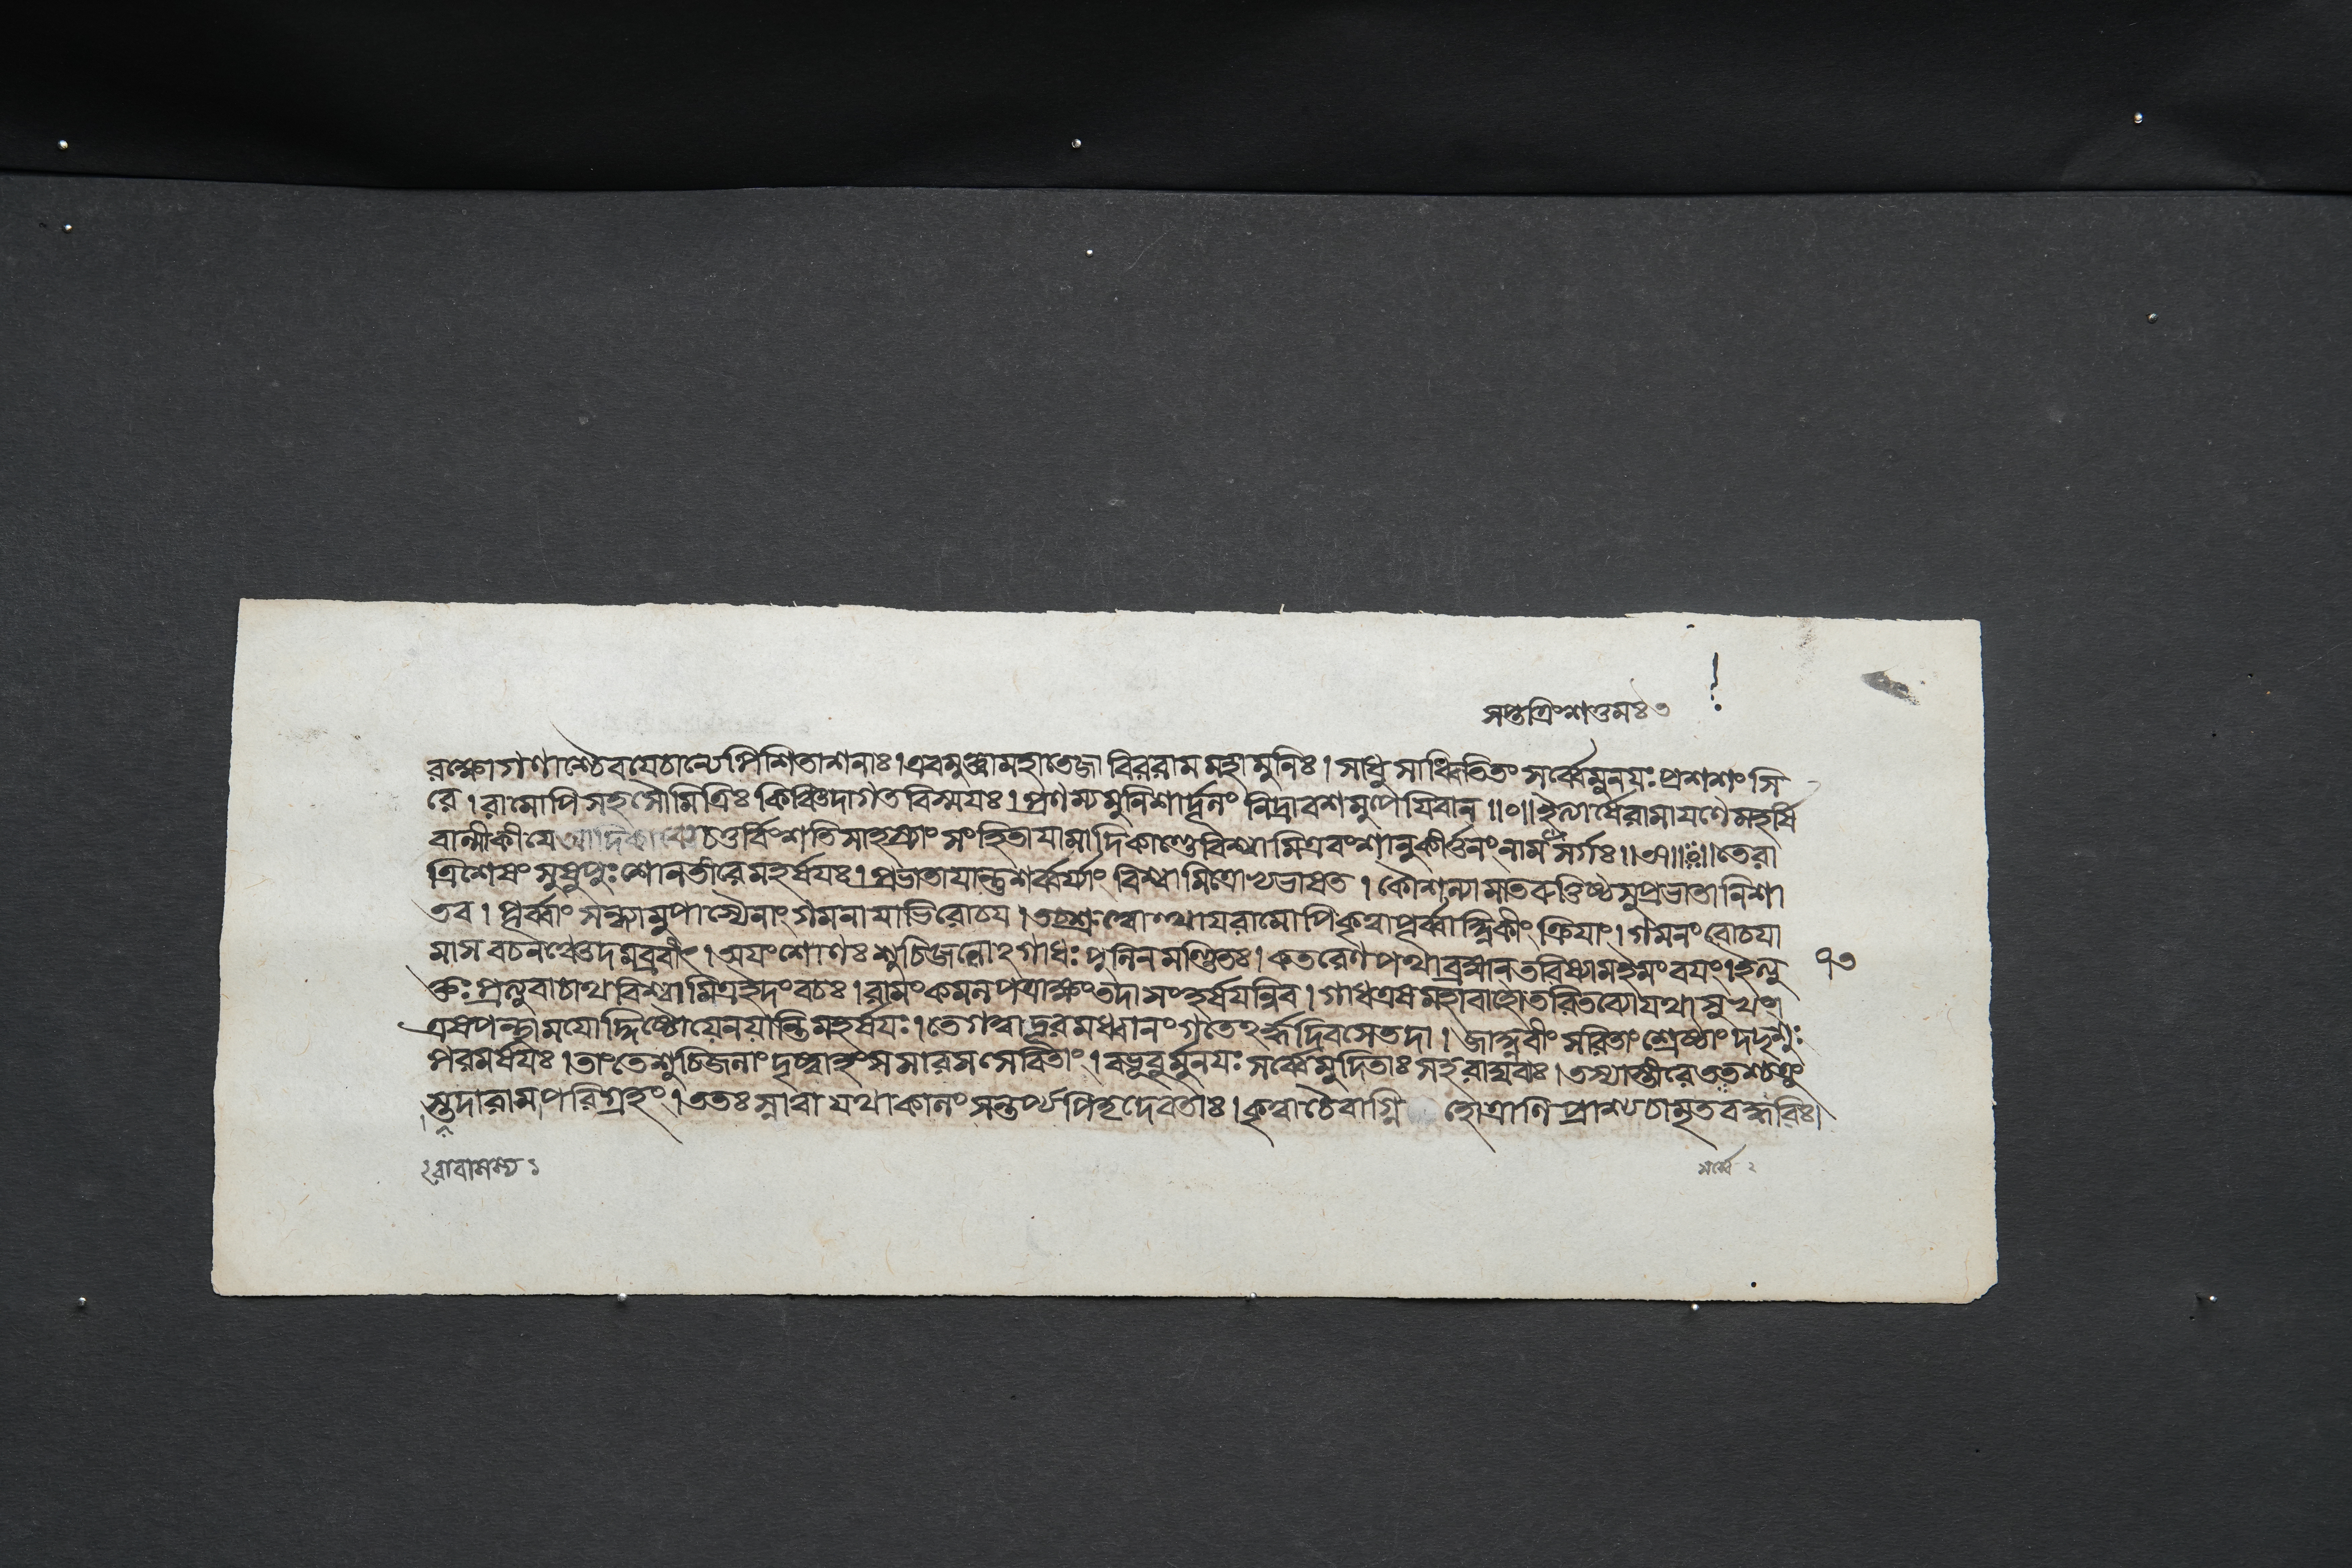 সপ্তত্রিংশত্তমঃ ৩
রক্ষোগণাশ্চৈব যেচান্যে পিশিতাশনাঃ। এবমুক্ত্বা মহাতেজা বিররাম মহামুনিঃ। সাধু সাধ্বিতিতং সর্ব্বে মুনয়ঃ প্রশশংসি
রে। রামোপি সহ সৌমিত্রিঃ কিঞ্চিদাগত বিস্ময়ঃ। প্রণম্য মুনিশার্দ্দূলং নিদ্রাবশমুপেয়িবান্॥০॥ ইত্যার্ষেরামায়ণে মহর্ষি
বাল্মীকীযে আদিকাব্যে চতুর্বিংশতি সাহস্র্যাং সংহিতাযামাদিকাণ্ডে বিশ্বামিত্রবংশানুকীর্ত্তনং নাম সর্গঃ॥ ॥ তে রা
ত্রিশেষং সুষুপুঃ শোনতীরে মহর্ষযঃ। প্রভাতাযান্তু শর্ব্বর্য্যাং বিশ্বামিত্রোভ্যভাষত। কৌশল্যামাতরুত্তিষ্ঠ সুপ্রভাতা নিশা
তব। পূর্ব্বাং সন্ধ্যামুপাস্যৈনাং গমনাযাভিরোচয। তচ্ছ্রুত্বোত্থায রামোপি কৃত্বা পূর্ব্বাহ্নিকীং ক্রিযাং। গমনং রোচযা
মাস বচনঞ্চেদমব্রবীৎ। অযংশোণঃ শুচিজলোঽগাধঃ পুলিনমণ্ডিতঃ। কতরেণ পথা ব্রহ্মন্ তরিষ্যামইমং বযং। ইত্যু
৭৩
ক্তঃ প্রত্যুবাচাথ বিশ্বামিত্র ইদং বচঃ। রামং কমলপত্রাক্ষং তদা সংহর্ষযন্নিব। গাধ এষ মহাবাহো তরিতব্যো যথাসুখং।
এষপন্থা মযোদ্দিষ্টো যেন যান্তি মহর্ষযঃ। তে গত্বা দূরমধ্বানং গতেঽর্দ্ধদিবসে তদা। জাহ্নবীং সরিতাং শ্রেষ্ঠাং দদৃশুঃ
পরমর্ষযঃ। তাং তে শুচিজলাং দৃষ্ট্বা হংসসারস সেবিতাং। বভূবুর্মুনযঃ সর্ব্বে মুদিতাঃ সহরাঘবাঃ। তস্যাস্তীরে ততশ্চক্রু
স্তদারাম পরিগ্রহং। ততঃ স্নাত্বা যথাকালং সন্তর্প্য পিতৃদেবতাঃ। কৃত্বা চৈবাগ্নি হোত্রাণি প্রাশ্য চামৃতবদ্ধবিঃ।